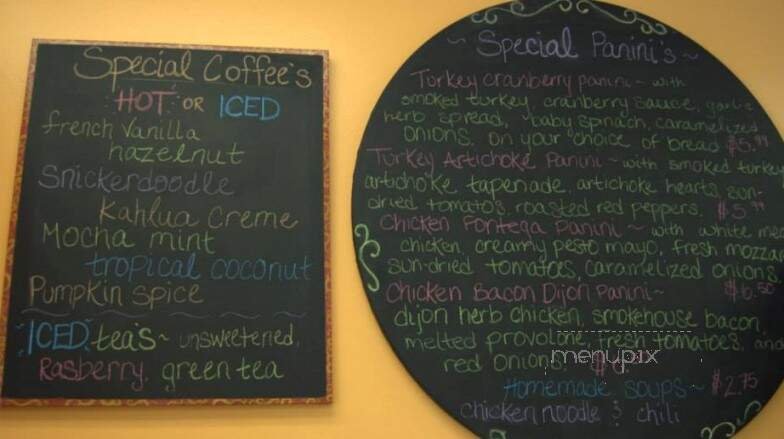 Special Coffee's
HOT or ICED
french Vanilla
hazelnut
Snickerdoodle
Kahlua Creme
Mocha mint
tropical coconut
Pumpkin spice
ICED teas~ unsweetened,
Rasberry, green tea
~ Special Panini's ~
Turkey cranberry panini~ with
smoked turkey, cranberry sauce, garlic
herb spread, baby spinach, caramelized
onions. on your choice of bread $5.99
Turkey Artichoke Panini~ with smoked turkey
artichoke tapenade, artichoke hearts, sun-
dried tomatos, roasted red peppers. $5.99
Chicken Fontega Panini~ with white mea
chicken, creamy pesto mayo, fresh mozzar
sun-dried tomatoes, caramelized onions
$6.50
Chicken Bacon Dijon Panini~
dijon herb chicken, smokehouse bacon,
melted provolone, fresh tomatoes, and
red onions.
menupix
Homemade soups~ $2.75
chicken noodle & chili